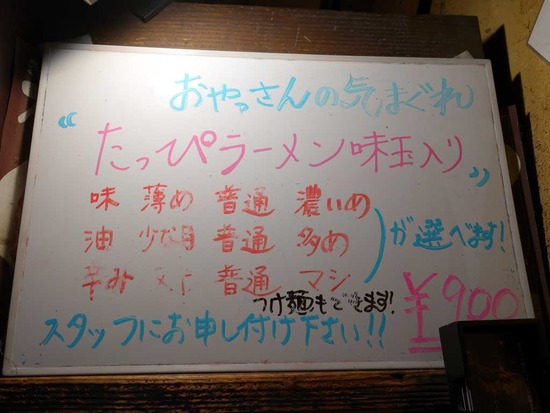 おやっさんの気まぐれ
“たっぴラーメン味玉入り”
味 薄め 普通 濃いめ
油 少な目 普通 多め
辛み 普通 マシ
が選べます!
つけ麺もできます!
¥900
スタッフにお申し付け下さい!!